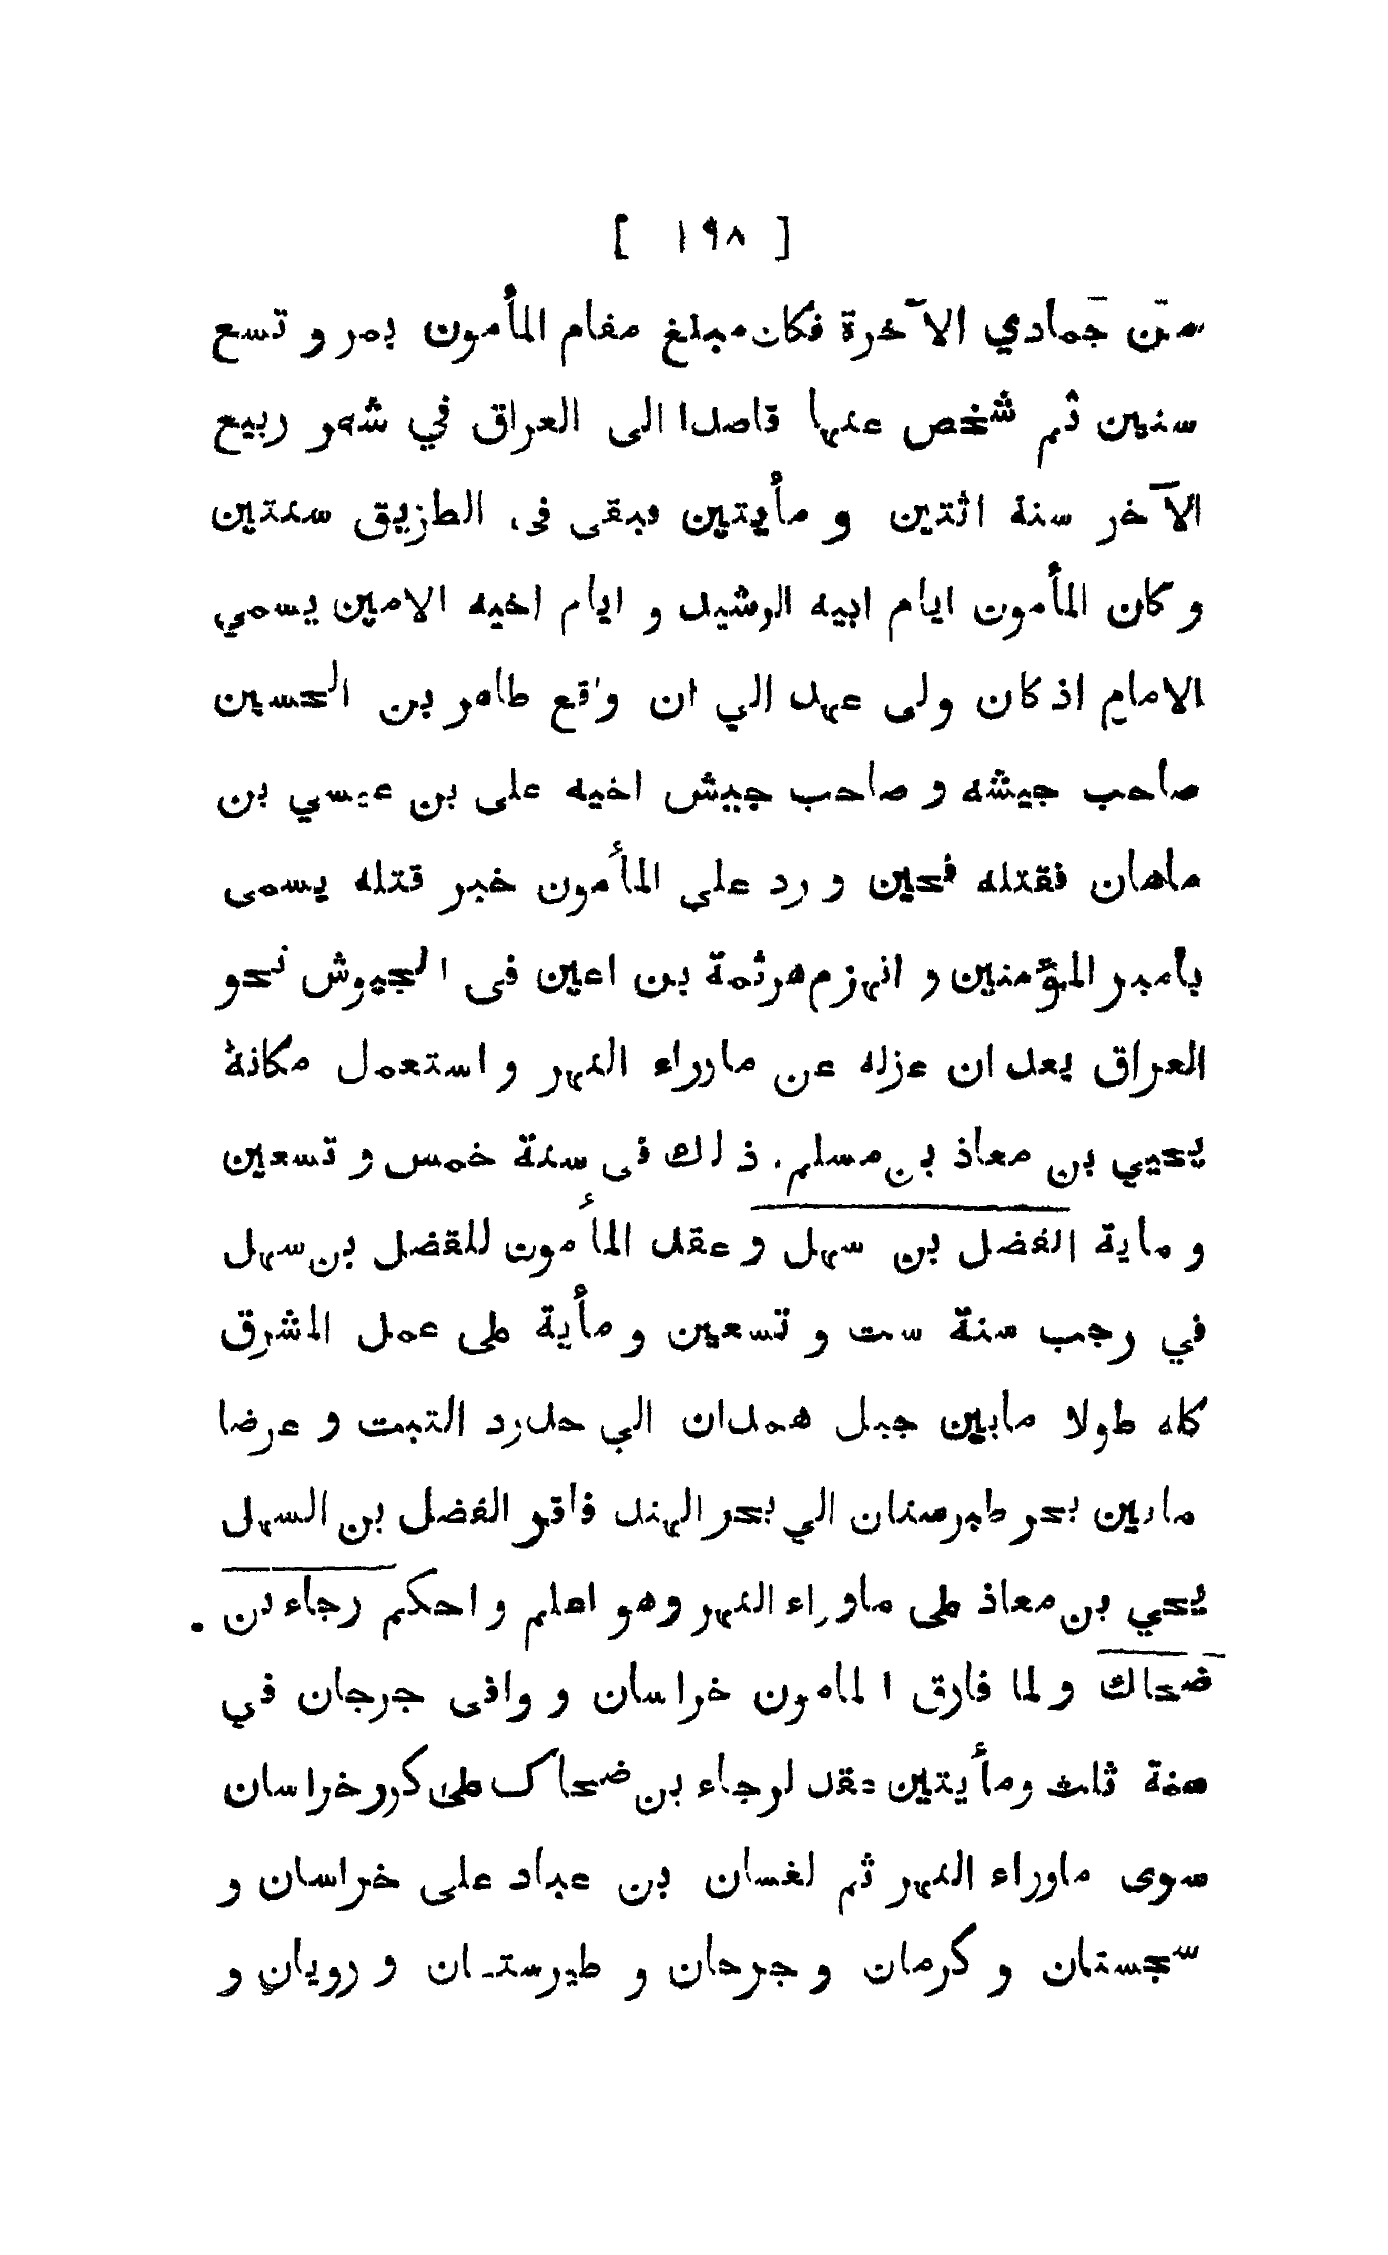 [ ١٩٨ ]
من جمادي الآخرة فكان مبلغ مقام المأمون بمرو تسع
سنين ثم شخص عنها قاصدا الى العراق في شهر ربيع
الآخر سنة اثنتين و مأيتين فبقى فى الطريق سنتين
و كان المأمون ايام ابيه الرشيد و ايام اخيه الامين يسمي
الامام اذ كان ولى عهد الي ان واقع طاهر بن الحسين
صاحب جيشه و صاحب جيش اخيه على بن عيسي بن
ماهان فقتله فحين و رد علي المأمون خبر قتله يسمى
بامير المؤمنين و انهزم هرثمة بن اعين فى الجيوش نحو
العراق بعد ان عزله عن ماوراء النهر و استعمل مكانة
يحيي بن معاذ بن مسلم . ذ لك فى سنة خمس و تسعين
و ماية الفضل بن سهل و عقد المأمون للفضل بن سهل
في رجب سنة ست و تسعين و مأية على عمل المشرق
كله طولا مابين جبل همدان الي حدود التبت و عرضا
مابين بحر طبرستان الي بحر الهند فاقر الفضل بن السهل
يحي بن معاذ على ماوراء النهر وهو اعلم و احكم رجاء بن
ضحاك و لما فارق المامون خراسان و وافى جرجان في
سنة ثلث ومأيتين عقد لرجاء بن ضحاك على كور خراسان
سوى ماوراء النهر ثم لغسان بن عباد على خراسان و
سجستان و كرمان و جرجان و طبرستـ ان و رويان و